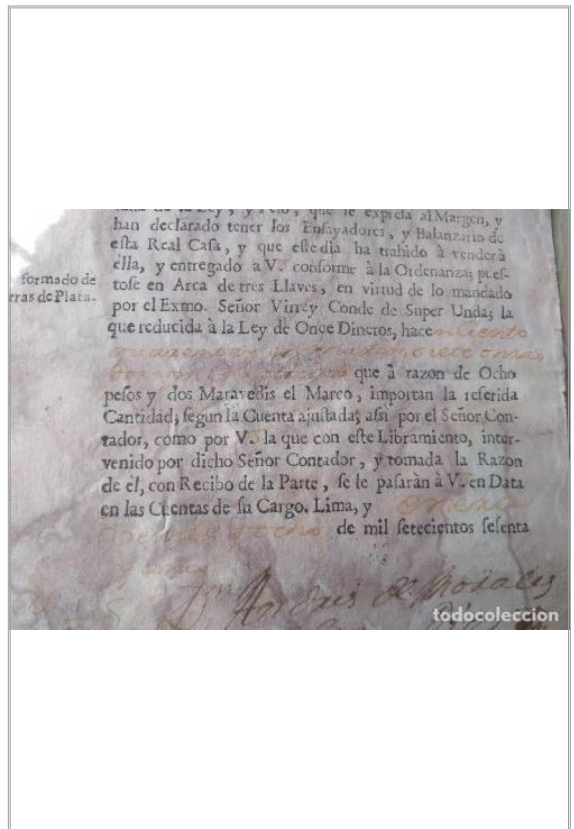 de la Ley, y Peso, que se expresa al Margen, y
han declarado tener los Ensayadores, y Balanzario de
esta Real Casa, y que este dia ha trahido à venderà
ella, y entregado à V. conforme à la Ordenanza; pues-
formado de
rras de Plata.
tose en Arca de tres Llaves, en virtud de lo mandado
por el Exmo. Señor Virrey Conde de Super Unda; la
que reducida à la Ley de Once Dineros, hacen Ciento
quarenta
que à razon de Ocho
pesos y dos Maravedis el Marco, importan la referida
Cantidad; segun la Cuenta ajustada; assi por el Señor Con-
tador, como por V. la que con este Libramiento, inter-
venido por dicho Señor Contador, y tomada la Razon
de èl, con Recibo de la Parte, se le pasaràn à V. en Data
en las Cuentas de su Cargo. Lima, y Enero
Veinte y ocho de mil setecientos sesenta
y uno
Andres de Morales
todocoleccion